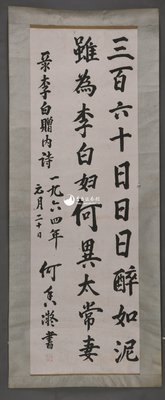 三百六十日日日醉如泥
雖為李白婦何異太常妻
录李白贈內詩
一九六四年
元月二十日
何香凝書